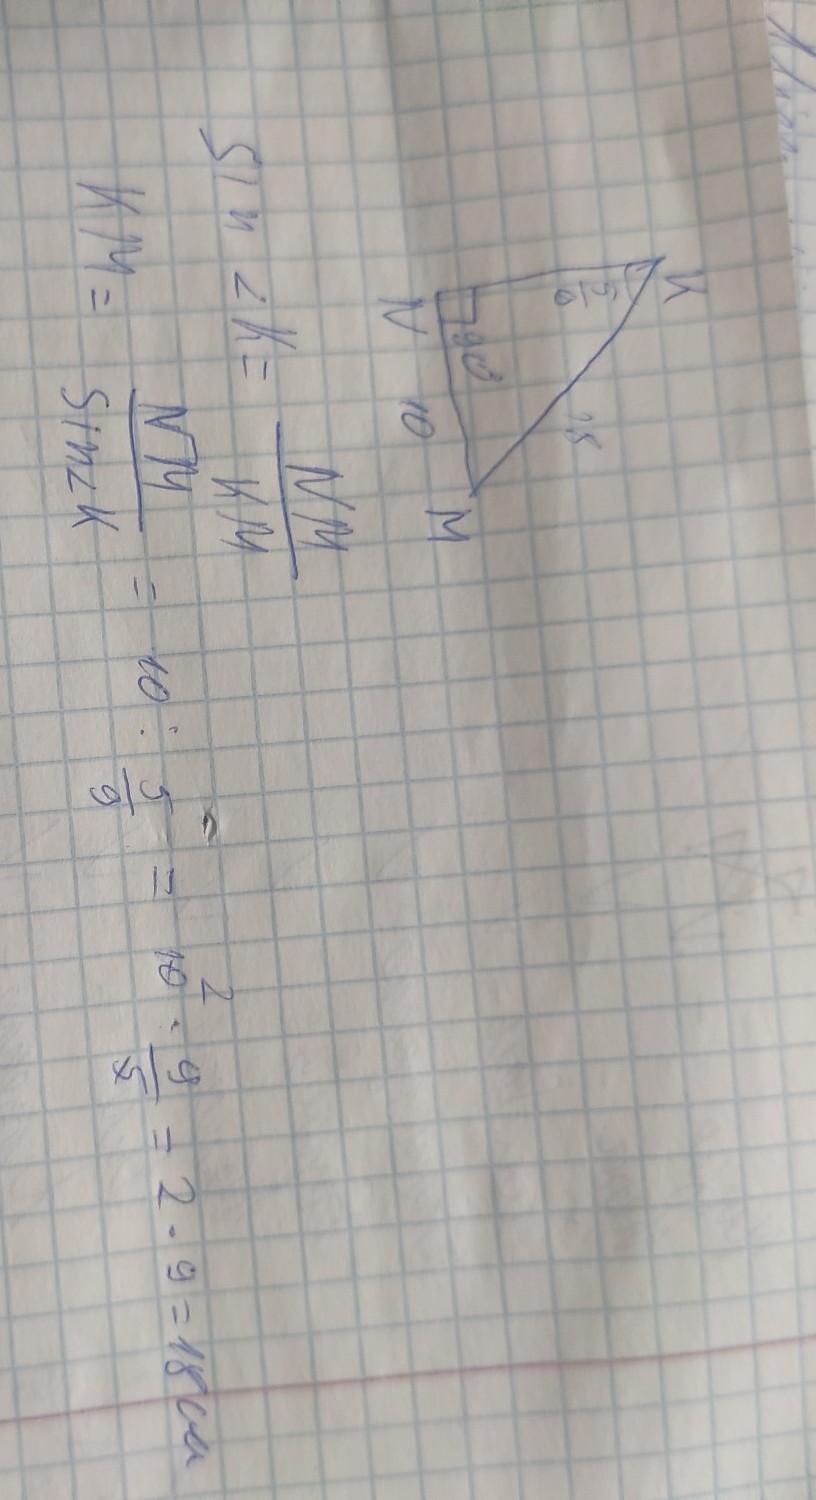 K
5/9
18
90°
N
10
M
Sin ∠K = NM/KM
KM = NM/Sin∠K = 10 : 5/9 = 10 2 · 9/5 = 2 · 9 = 18 см